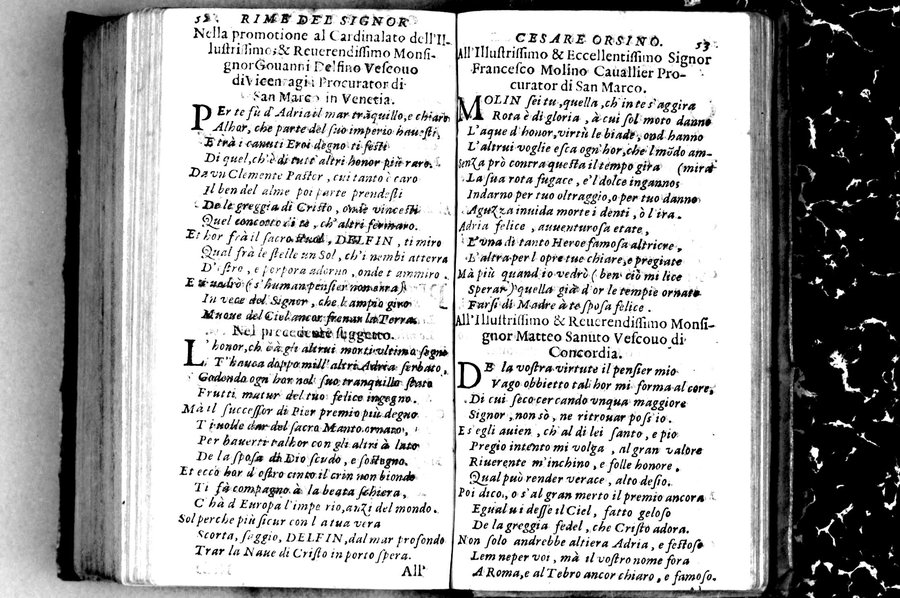 52 RIME DEL SIGNOR
Nella promotione al Cardinalato dell'Il-
lustrissimo, & Reuerendissimo Monsi-
gnor Gouanni Delfino Vescouo
di Vicenza gia Procurator di
San Marco in Venetia.
PEr te fù d'Adria il mar trãquillo, e chiaro
Alhor, che parte del suo imperio hauesti,
E trà i canuti Eroi degno ti festi
Di quel, ch'è di tutt' altri honor più raro.
Da vn Clemente Pastor, cui tanto è caro
Il ben del alme poi parte prendesti
De le greggia di Cristo, onde vincesti
Quel concorso di te, ch'altri fermaro.
Et hor frà il sacro stuol, DELFIN, ti miro
Qual frà le stelle un Sol, ch'i nembi atterra
D'ostro, e porpora adorno, onde t'ammiro.
E vedrò (s'human pensier non erra)
In vece del Signor, che l'ampio giro
Muoue del Ciel ancor frenar la Terra.
Nel precedente suggetto.
L'honor, ch'è à gli altrui morti vltimo segno
T'hauea doppo mill'altri Adria serbato,
Godendo ogn hor nol suo tranquillo stato
Frutti matur del tuo felice ingegno.
Mà il successor di Pier premio più degno
Ti volse dar del sacro Manto ornato,
Per hauerti talhor con gli altri à lato
De la sposa di Dio scudo, e sostegno.
Et ecco hor d'ostro cinto il crin non biondo
Ti fà compagno à la beata schiera,
C'hà d'Europa l'imperio, anzi del mondo.
Sol perche più sicur con la tua vera
Scorta, saggio, DELFIN, dal mar profondo
Trar la Naue di Cristo in porto spera.
All'
CESARE ORSINO. 53
All'Illustrissimo & Eccellentissimo Signor
Francesco Molino Cauallier Pro-
curator di San Marco.
MOLIN sei tu, quella, ch'in te s'aggira
Rota è di gloria, à cui sol moto danno
L'aque d'honor, virtù le biade, ond hanno
L'altrui voglie esca ogn hor, che l mõdo am-
Senza prò contra questa il tempo gira (mira
La sua rota fugace, e'l dolce inganno:
Indarno per tuo oltraggio, o per tuo danno
Aguzza inuida morte i denti, ò l'ira.
Adria felice, auuenturosa etate,
L'vna di tanto Heroe famosa altriere,
L'altra per l opre tue chiare, e pregiate
Mà più quand io vedrò (ben ciò mi lice
Sperar) quella già d'or le tempie ornate
Farsi di Madre à te sposa felice.
All'Illustrissimo & Reuerendissimo Monsi-
gnor Matteo Sanuto Vescouo di
Concordia.
DE la vostra virtute il pensier mio
Vago obbietto tal hor mi forma al core,
Di cui seco cercando vnqua maggiore
Signor, non sò, ne ritrouar poss'io.
E s'egli auien, ch'al di lei santo, e pio
Pregio intento mi volga, al gran valore
Riuerente m'inchino, e folle honore.
Qual può render verace, alto desio.
Poi dico, o s'al gran merto il premio ancora
Egual ui desse il Ciel, fatto geloso
De la greggia fedel, che Cristo adora.
Non solo andrebbe altiera Adria, e festosa
Lemne per voi, mà il vostro nome fora
A Roma, e al Tebro ancor chiaro, e famoso.